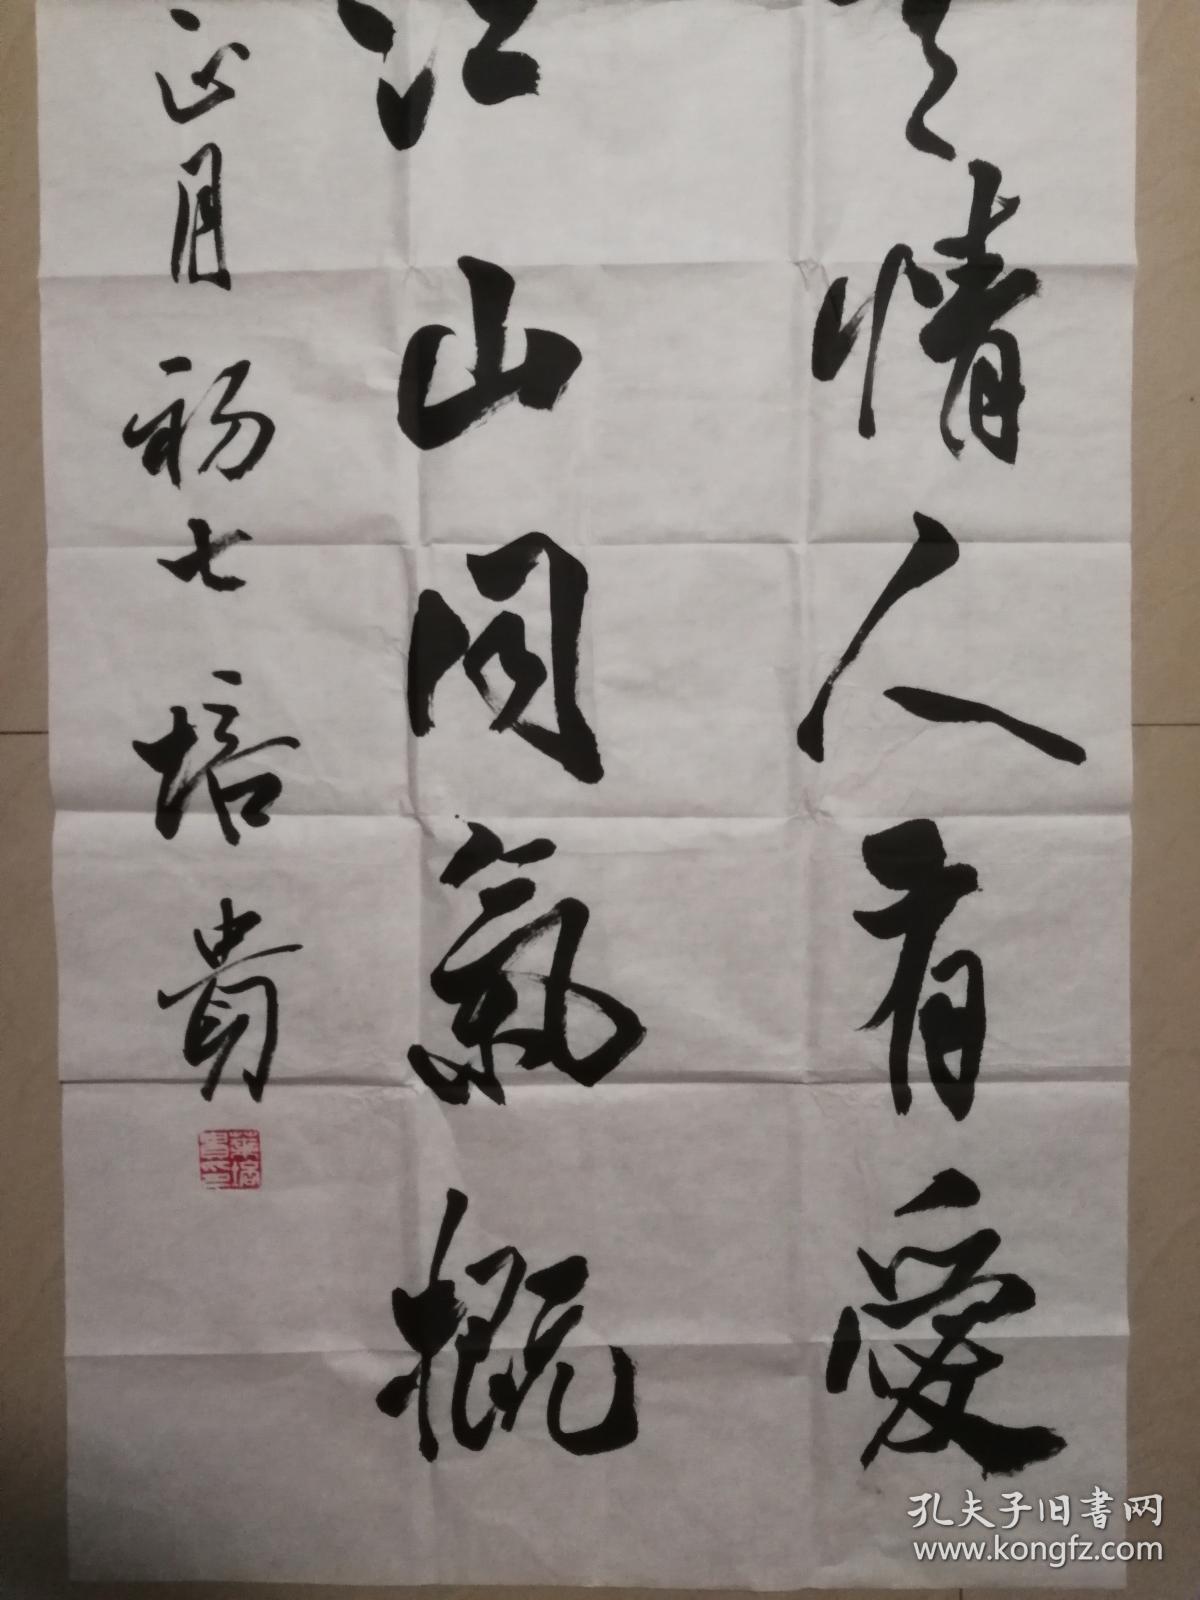 情人有愛
江山同氣概
正月初七培貴
葉培貴印
孔夫子旧書网
www.kongfz.com